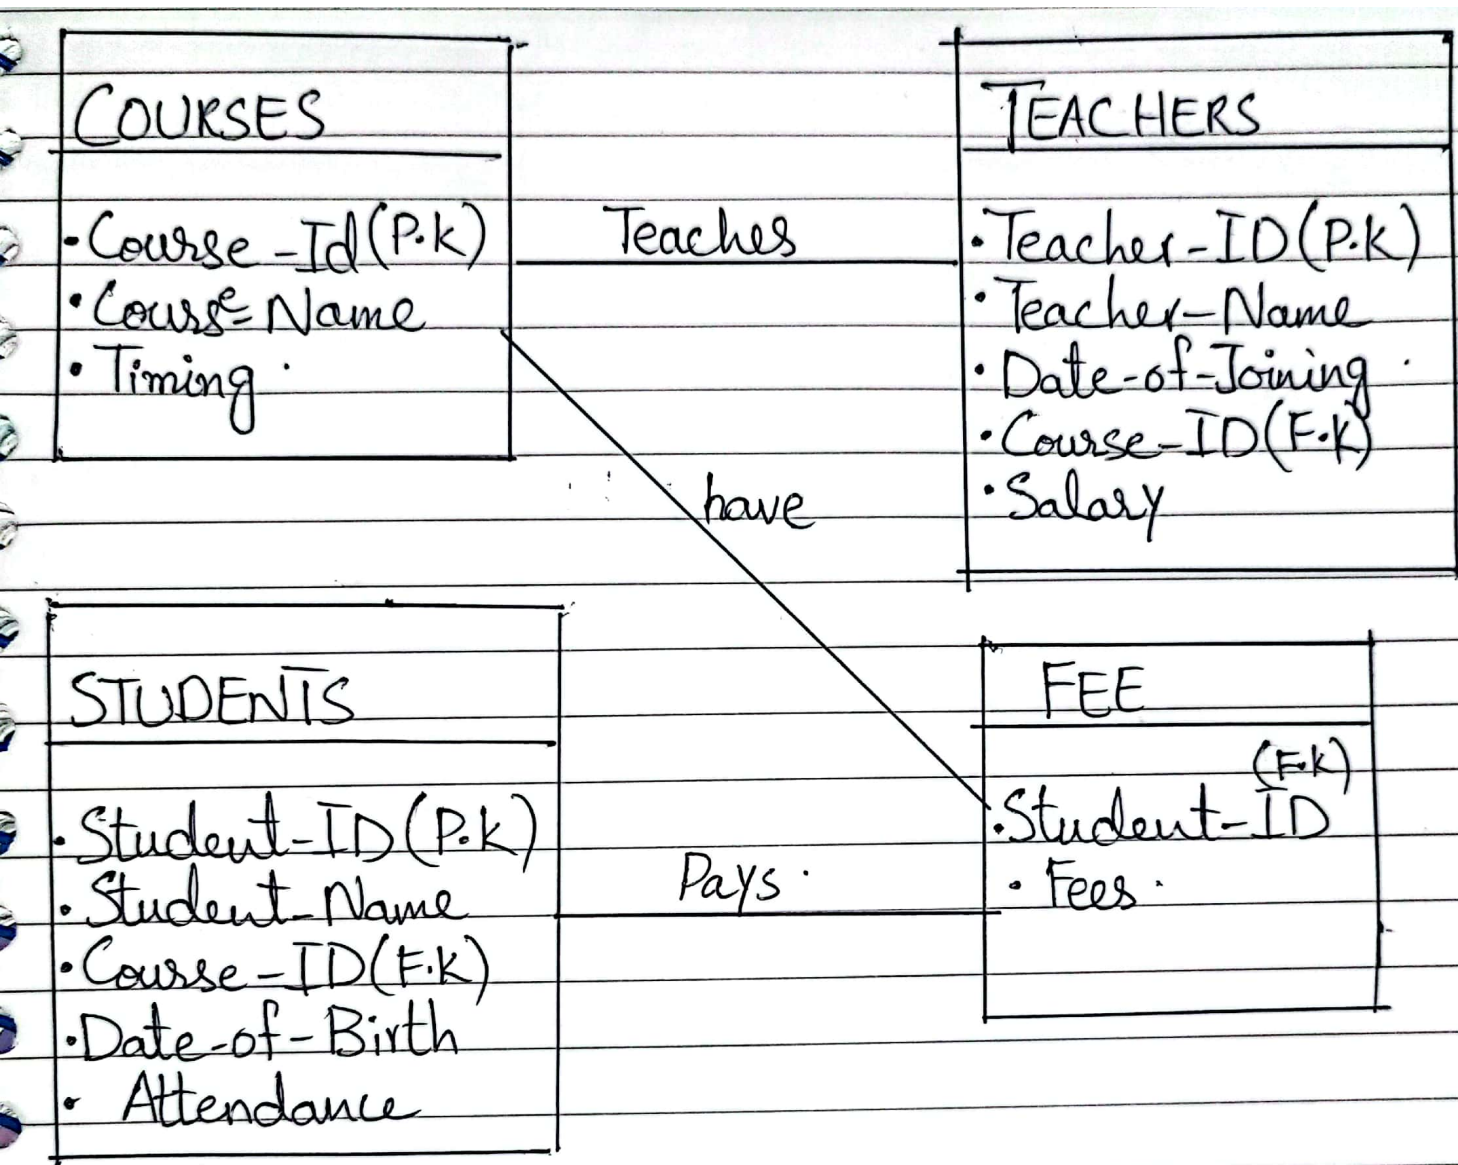 COURSES
• Course-Id (P.K)
• Course-Name
• Timing
Teaches
TEACHERS
• Teacher-ID (P.K)
• Teacher-Name
• Date-of-Joining
• Course-ID (F.K)
• Salary
have
STUDENTS
• Student-ID (P.K)
• Student-Name
• Course-ID (F.K)
• Date-of-Birth
• Attendance
Pays
FEE
(F.K)
• Student-ID
• Fees